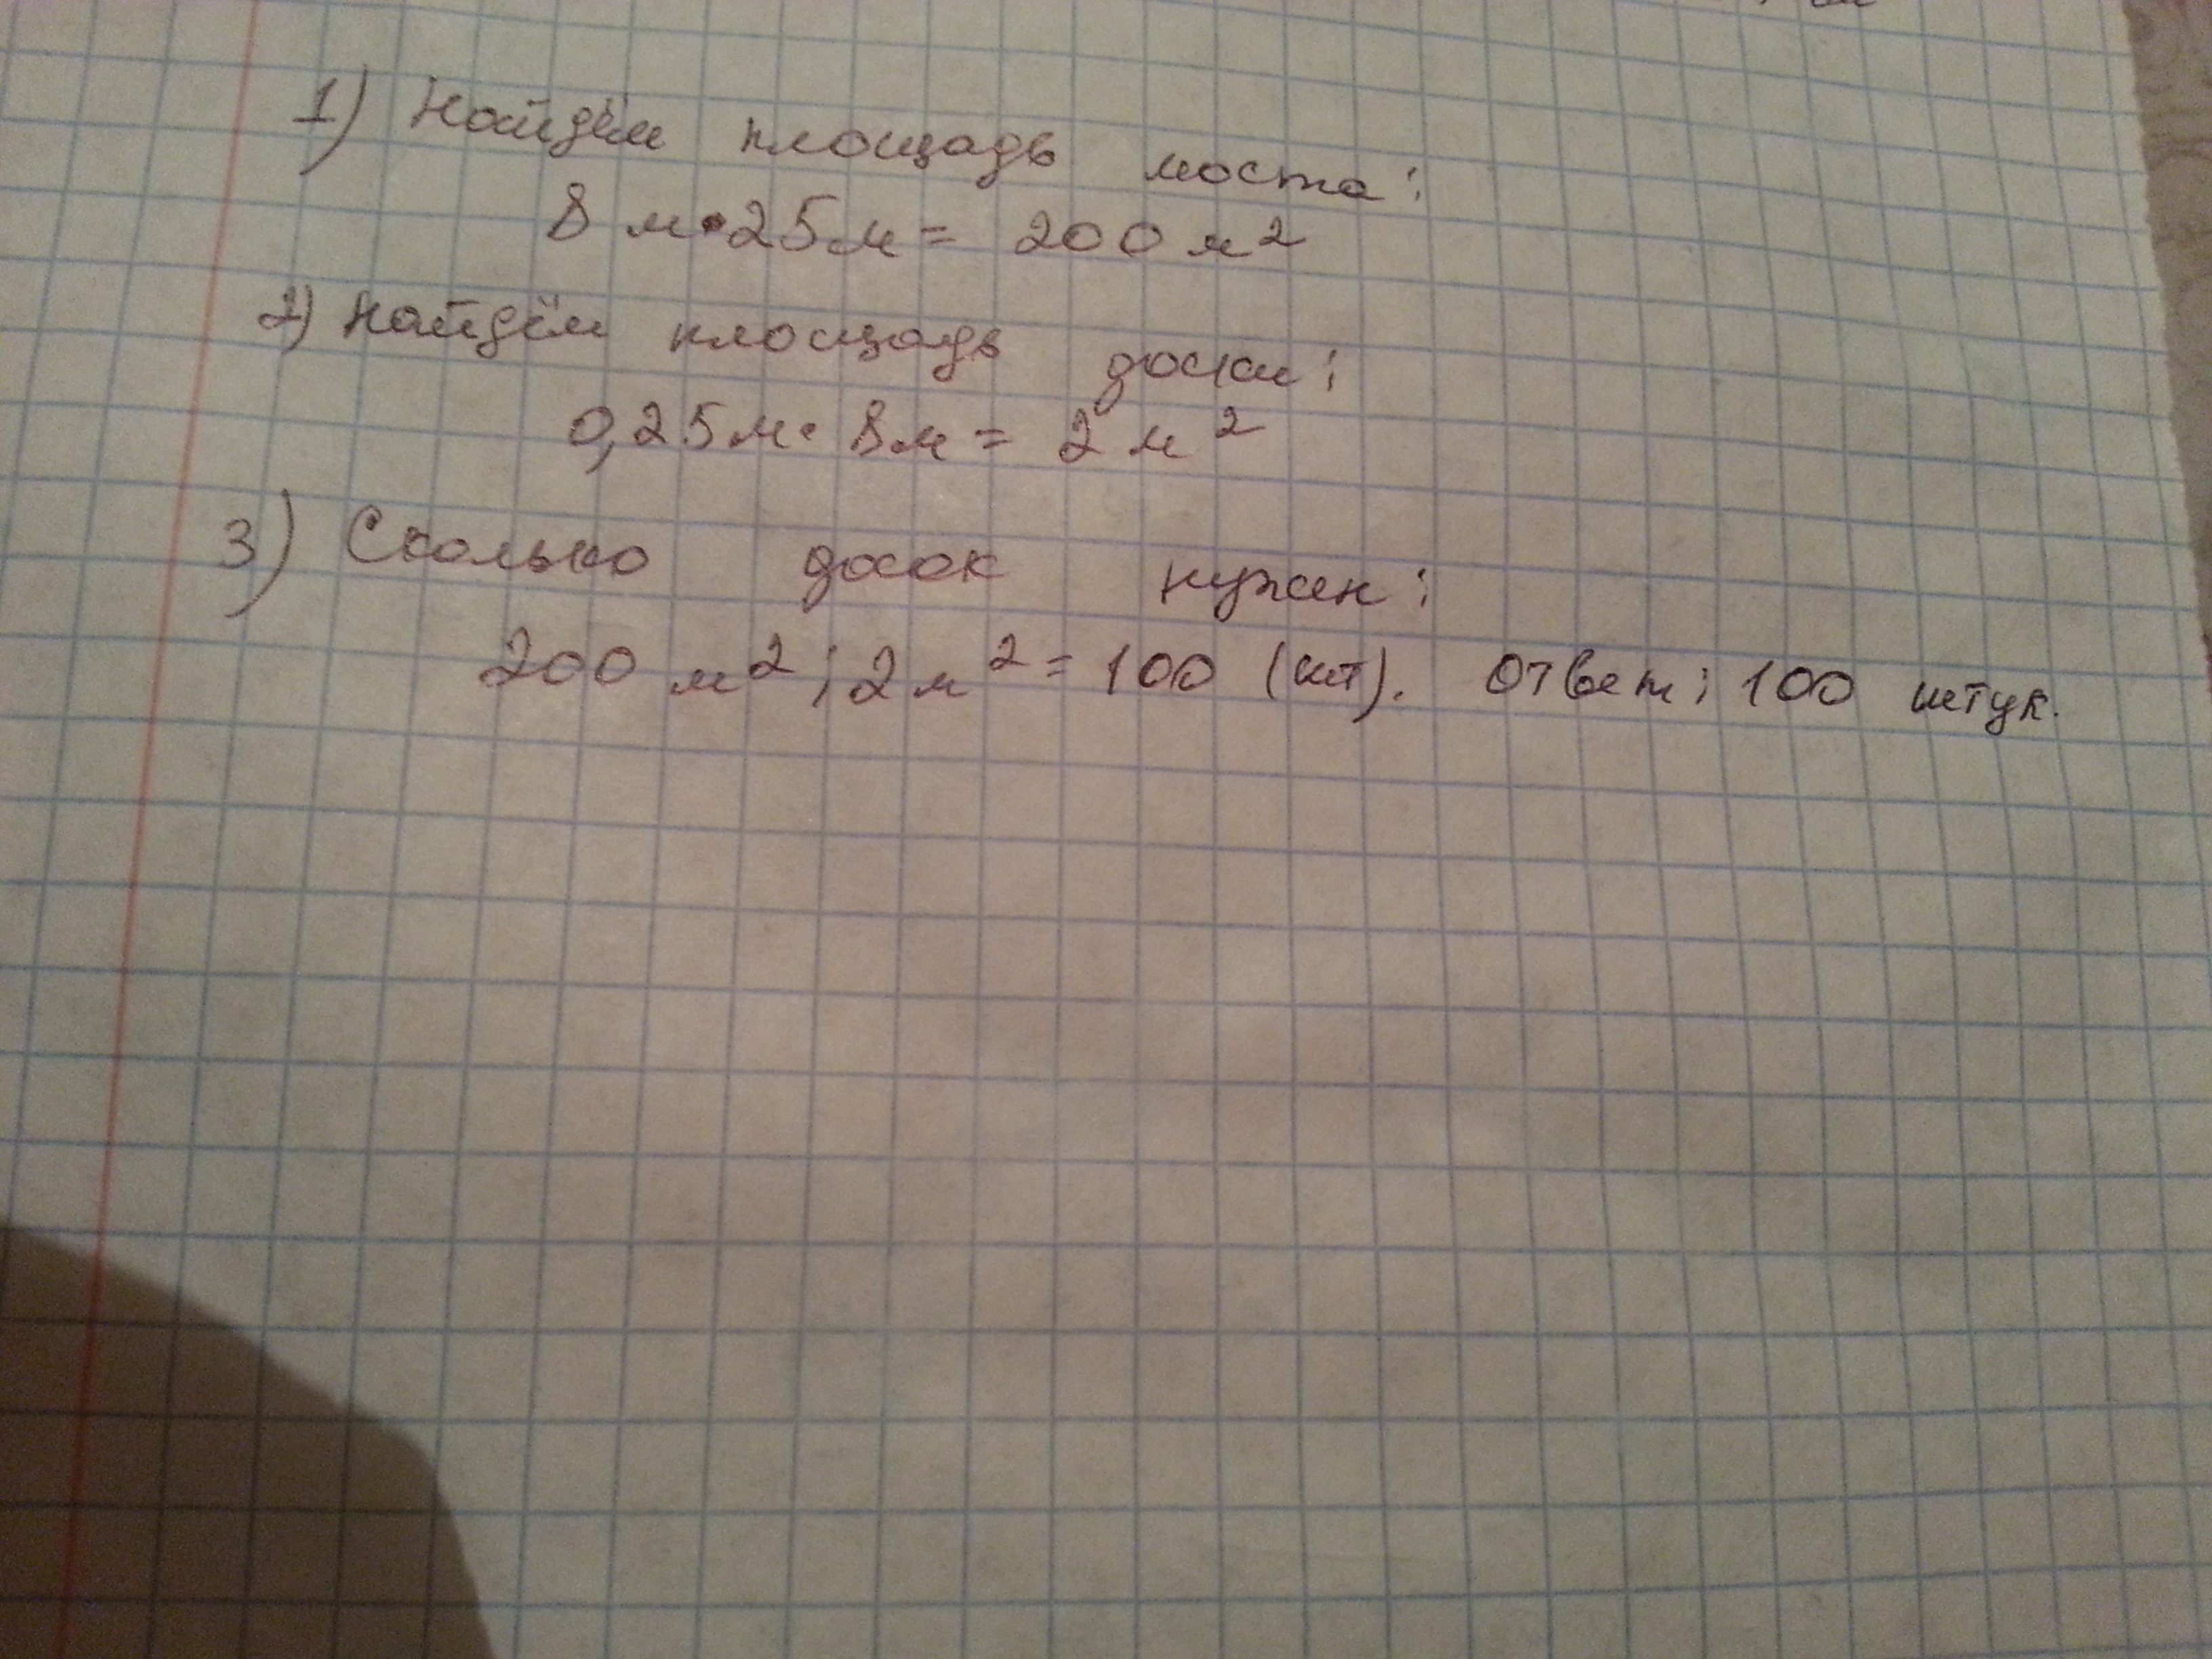 1) Найдём площадь моста:
8 м • 25 м = 200 м²
2) Найдём площадь доски:
0,25 м • 8 м = 2 м²
3) Сколько досок нужен:
200 м² : 2 м² = 100 (шт). Ответ: 100 штук.